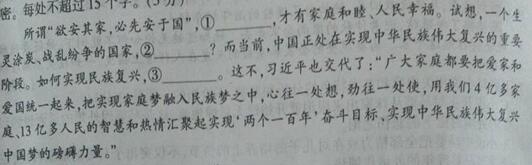 密。每处不超过15个字。(5分)
所谓"欲安其家,必先安于国",①______,才有家庭和睦、人民幸福。试想,一个生
灵涂炭、战乱纷争的国家,②______?而当前,中国正处在实现中华民族伟大复兴的重要
阶段。如何实现民族复兴,③______。这不,习近平也交代了:"广大家庭都要把爱家和
爱国统一起来,把实现家庭梦融入民族梦之中,心往一处想,劲往一处使,用我们4亿多家
庭、13亿多人民的智慧和热情汇聚起实现'两个一百年'奋斗目标、实现中华民族伟大复兴
中国梦的磅礴力量。"